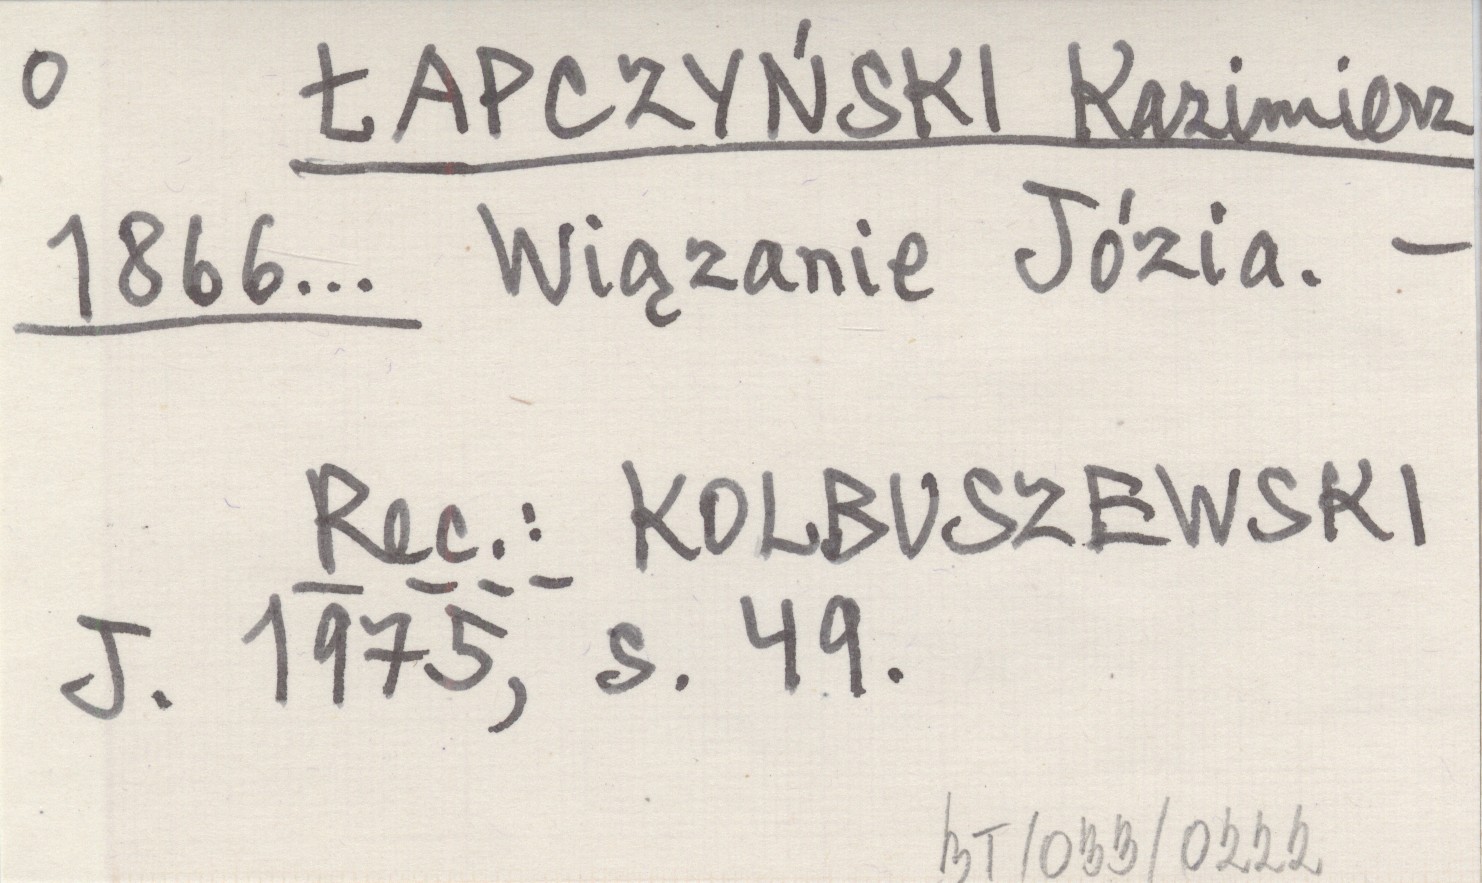 O ŁAPCZYŃSKI Kazimierz
1866... Wiązanie Józia. –
Rec.: KOLBUSZEWSKI
J. 1975, s. 49.
BT/033/0222